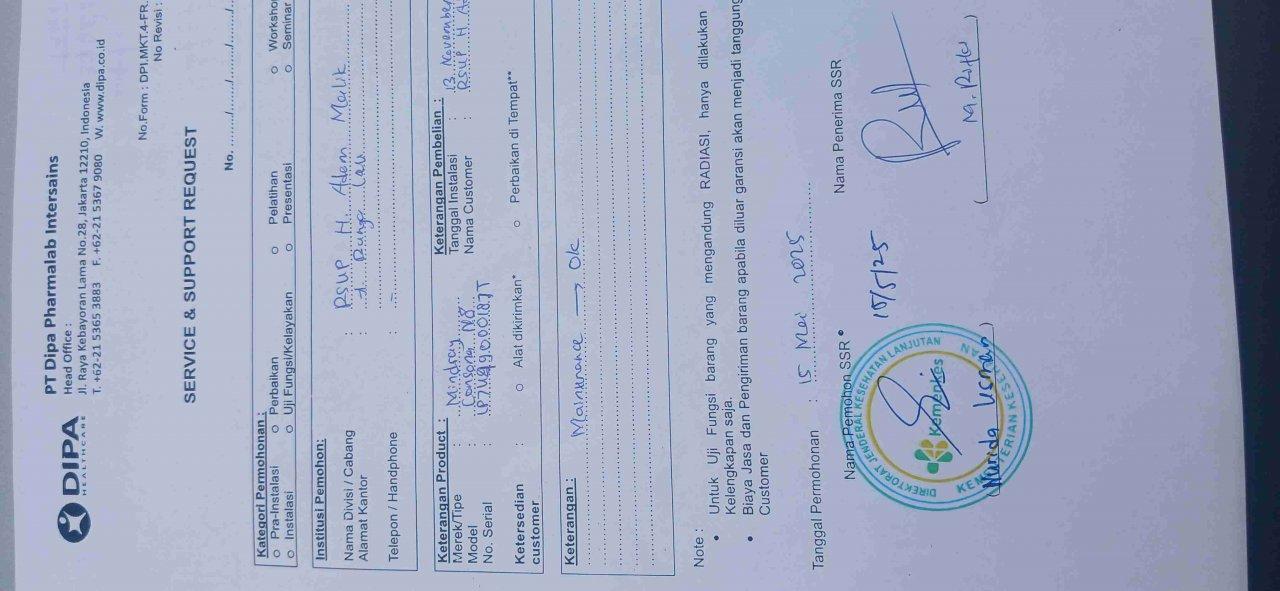 DIPA
HEALTHCARE
PT Dipa Pharmalab Intersains
Head Office :
Jl. Raya Kebayoran Lama No.28, Jakarta 12210, Indonesia
T. +62-21 5365 3883 F. +62-21 5367 9080 W. www.dipa.co.id
No.Form : DPI.MKT.4-FR.
No Revisi :
SERVICE & SUPPORT REQUEST
No. ......../......../......../..
Kategori Permohonan :
○ Pra-Instalasi ○ Perbaikan ○ Pelatihan ○ Worksho
○ Instalasi ○ Uji Fungsi/Kelayakan ○ Presentasi ○ Seminar
Institusi Pemohon:
Nama Divisi / Cabang : RSUP H. Adam Malik
Alamat Kantor : Jl. Bunga Lau
Telepon / Handphone :
Keterangan Product : Keterangan Pembelian :
Merek/Tipe : Mindray Tanggal Instalasi : 13 November
Model : Nama Customer : RSUP H. A
No. Serial :
Ketersedian : ○ Alat dikirimkan* ○ Perbaikan di Tempat**
customer
Keterangan : → Ok
Note :
• Untuk Uji Fungsi barang yang mengandung RADIASI, hanya dilakukan
Kelengkapan saja.
• Biaya Jasa dan Pengiriman barang apabila diluar garansi akan menjadi tanggung
Customer
Tanggal Permohonan : 15 Mei 2025
Nama Pemohon SSR • Nama Penerima SSR
15/5/25
DIREKTORAT JENDERAL KESEHATAN LANJUTAN
Kemenkes
KEMENTERIAN KESEHATAN